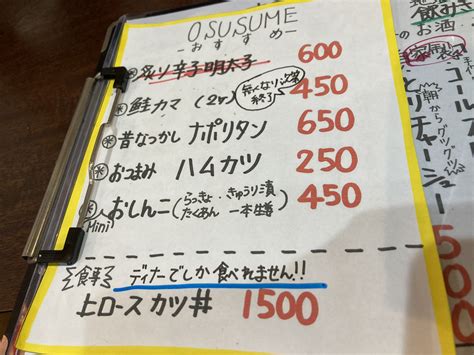 OSUSUME
-おすすめ-
炙り辛子明太子 600
鮭カマ(2ヶ) 450
無くなり次第終了
昔なつかし ナポリタン 650
おつまみ ハムカツ 250
Mini おしんこ(らっきょ・きゅうり漬 たくあん 一本生姜) 450
食事 ディナーでしか食べれません!!
上ロースカツ丼 1500
お酒
朝からグツグツ
チャーシュー